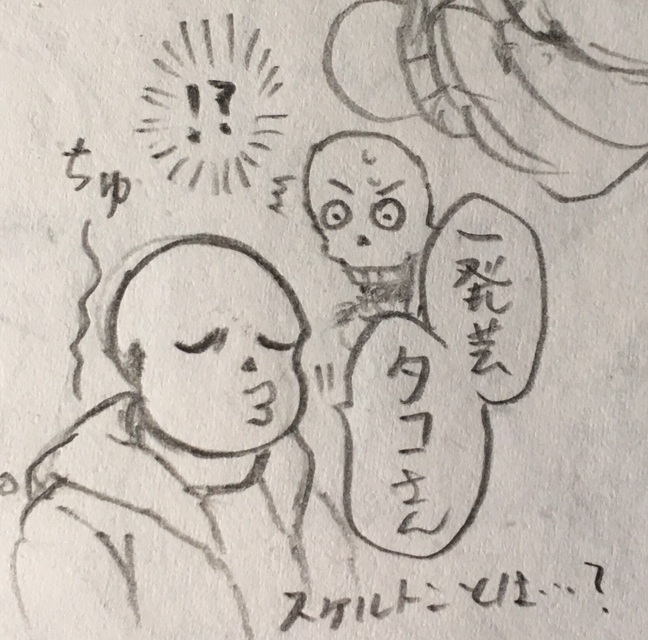 !?
ちゅ
一発芸
タコさん
スケルトンとは…?